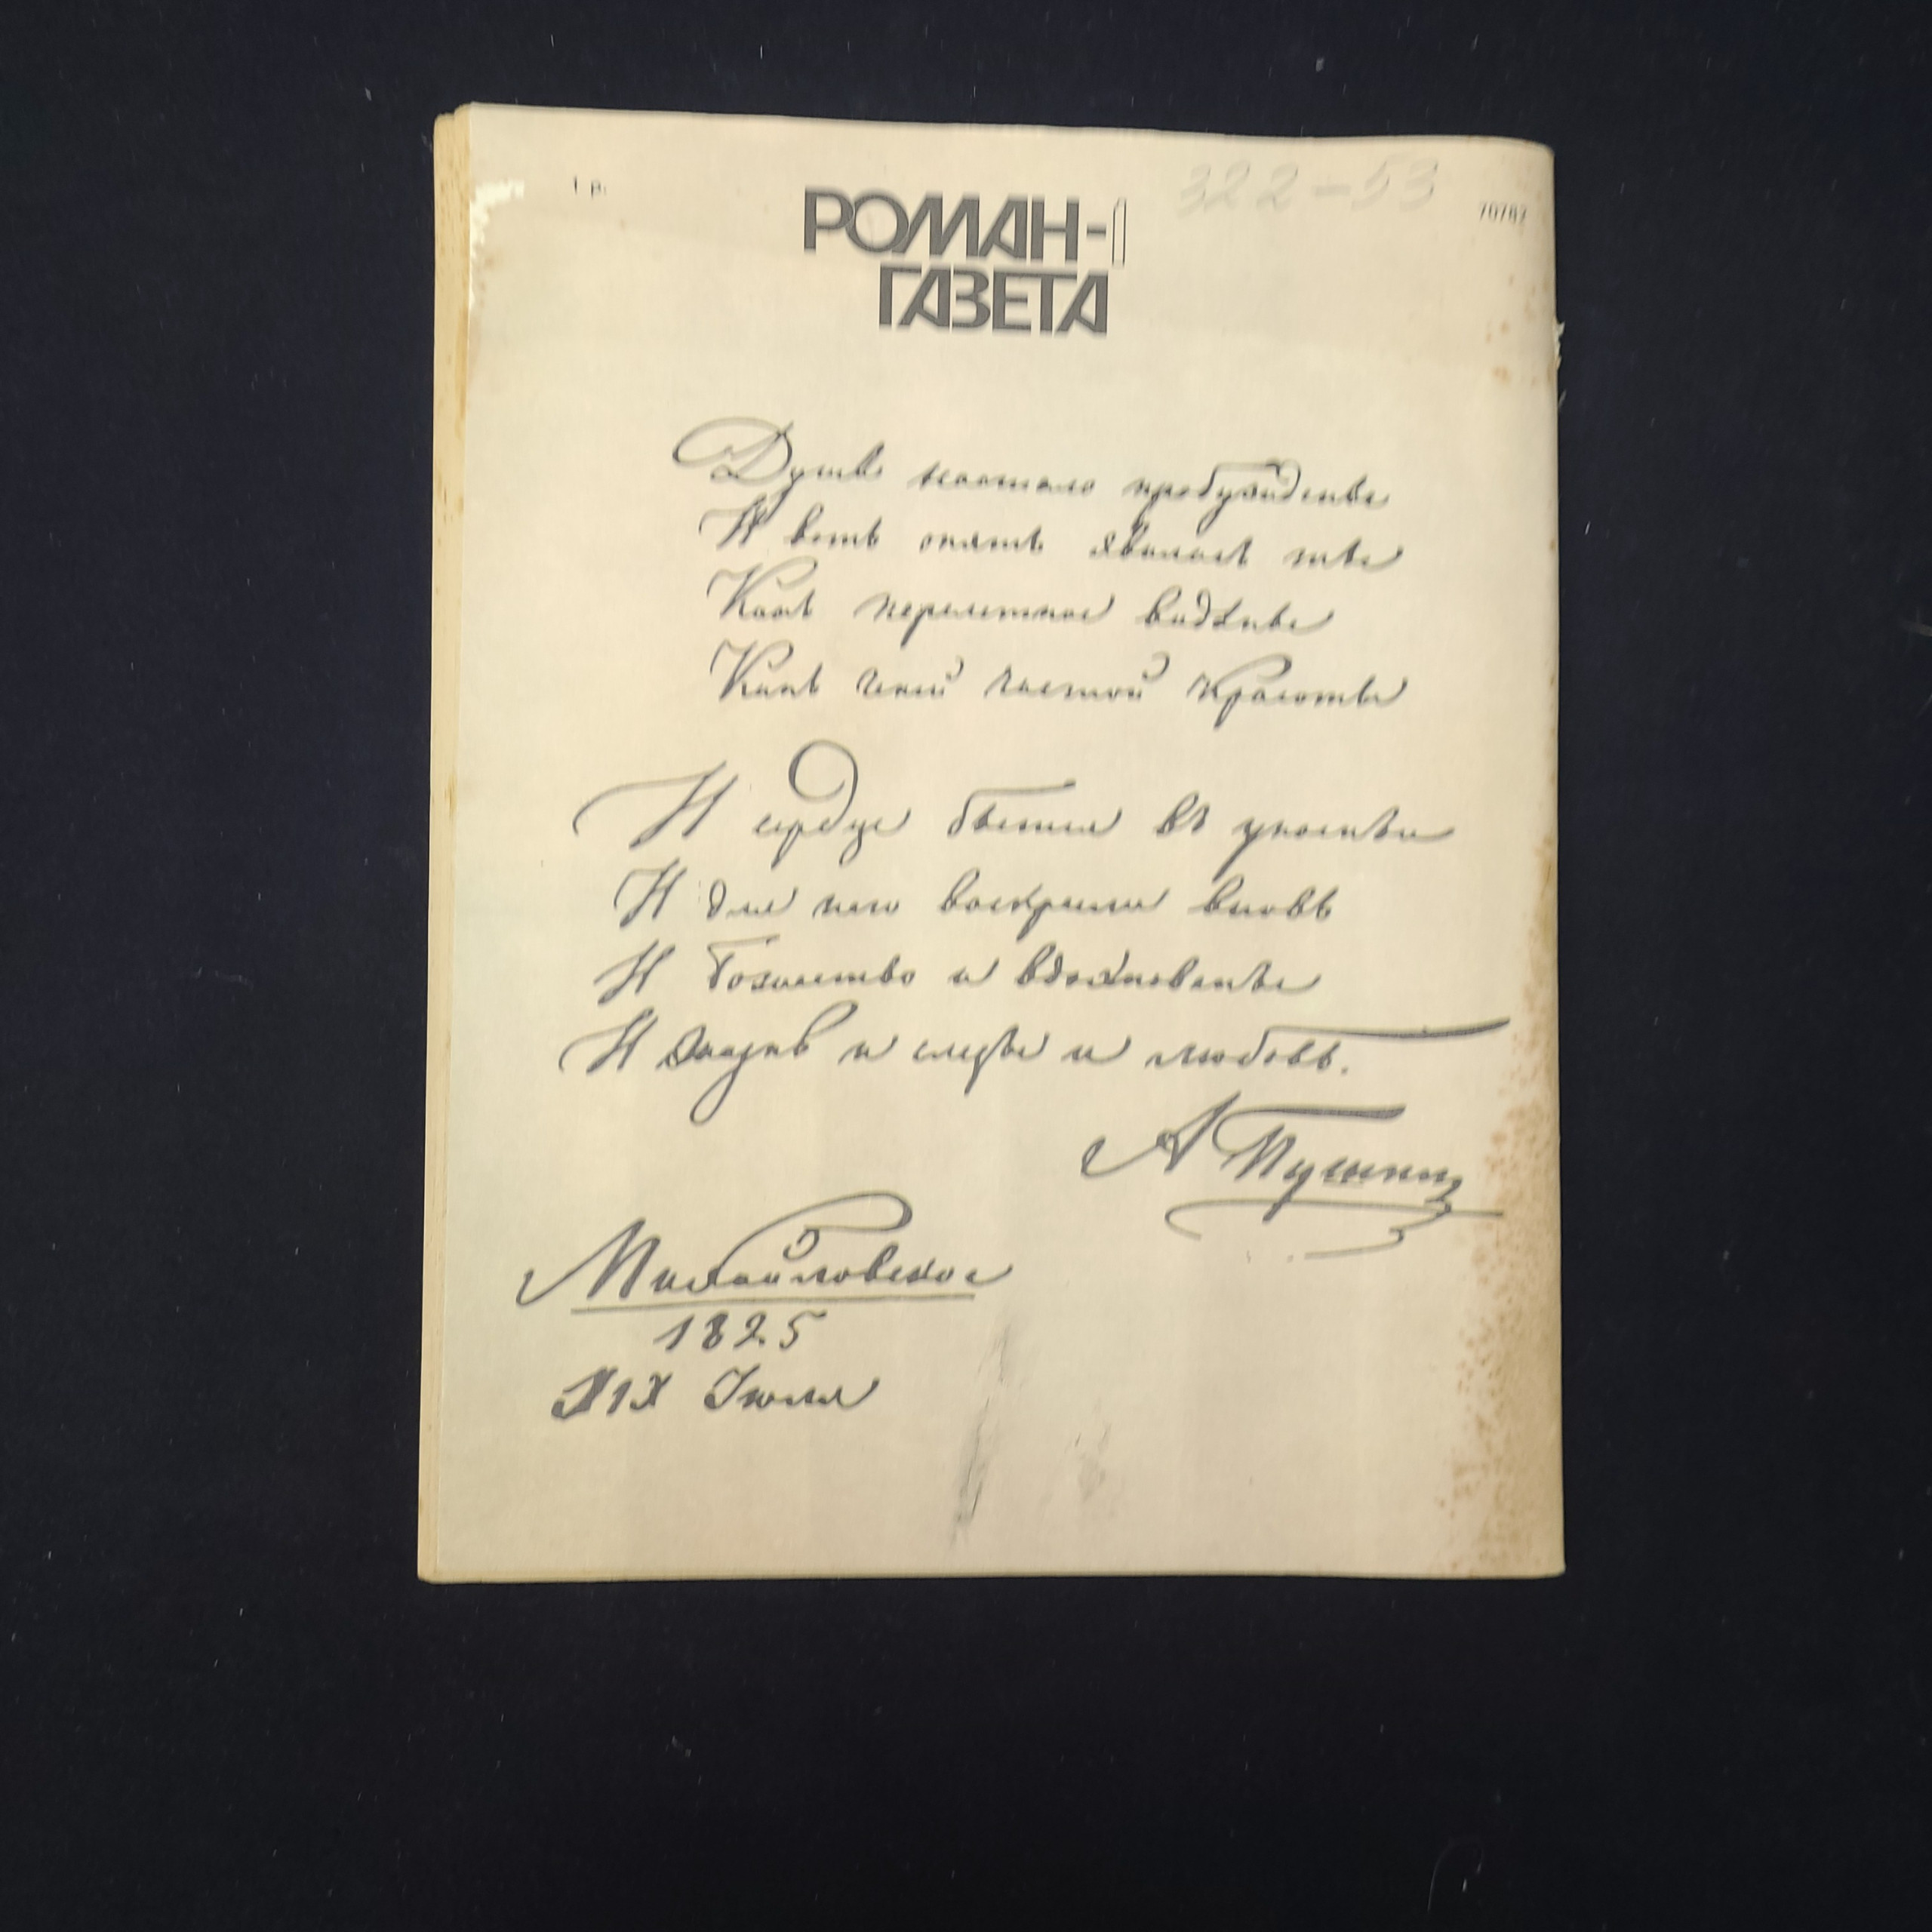 1 р.
322-53
70787
РОМАН-
ГАЗЕТА
Душѣ настало пробужденье
И вотъ опять явилась ты
Какъ мимолетное видѣнье
Какъ геній чистой красоты
И сердце бьется въ упоеньи
И для него воскресли вновь
И Божество и вдохновенье
И жизнь и слезы и любовь.
А Пушкинъ
Михайловское
1825
XIX Июля